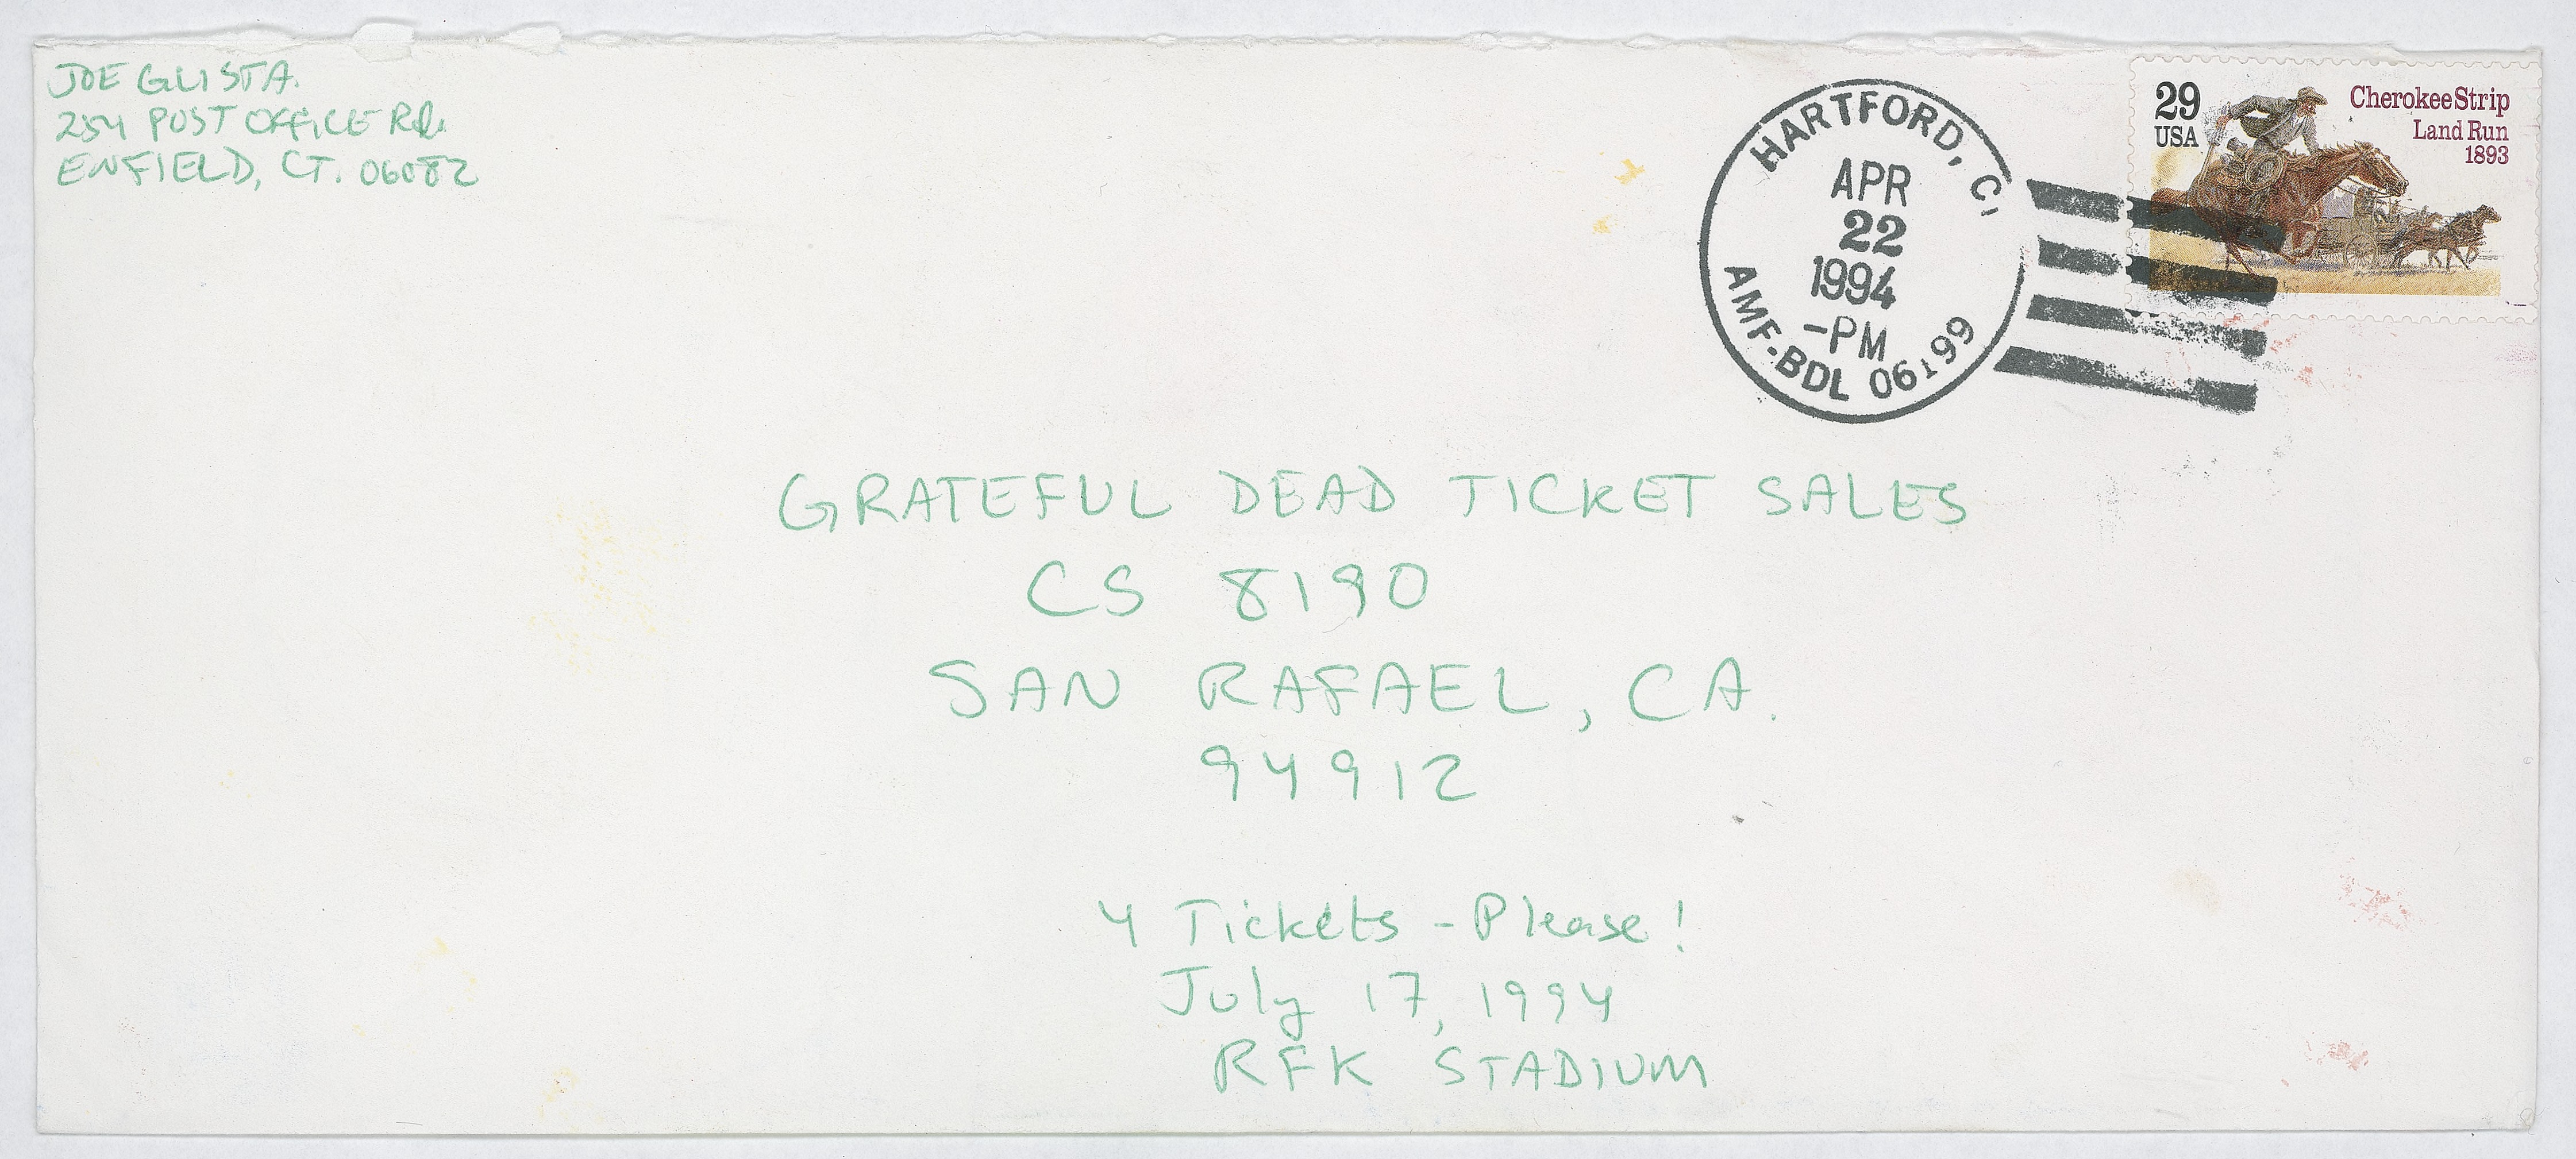 JOE GLISTA.
254 POST OFFICE RD.
ENFIELD, CT. 06082
HARTFORD, C
APR
22
1994
-PM
AMF-BDL 06199
29
USA
Cherokee Strip
Land Run
1893
GRATEFUL DEAD TICKET SALES
CS 8190
SAN RAFAEL, CA.
94912
4 Tickets - Please!
July 17, 1994
RFK STADIUM